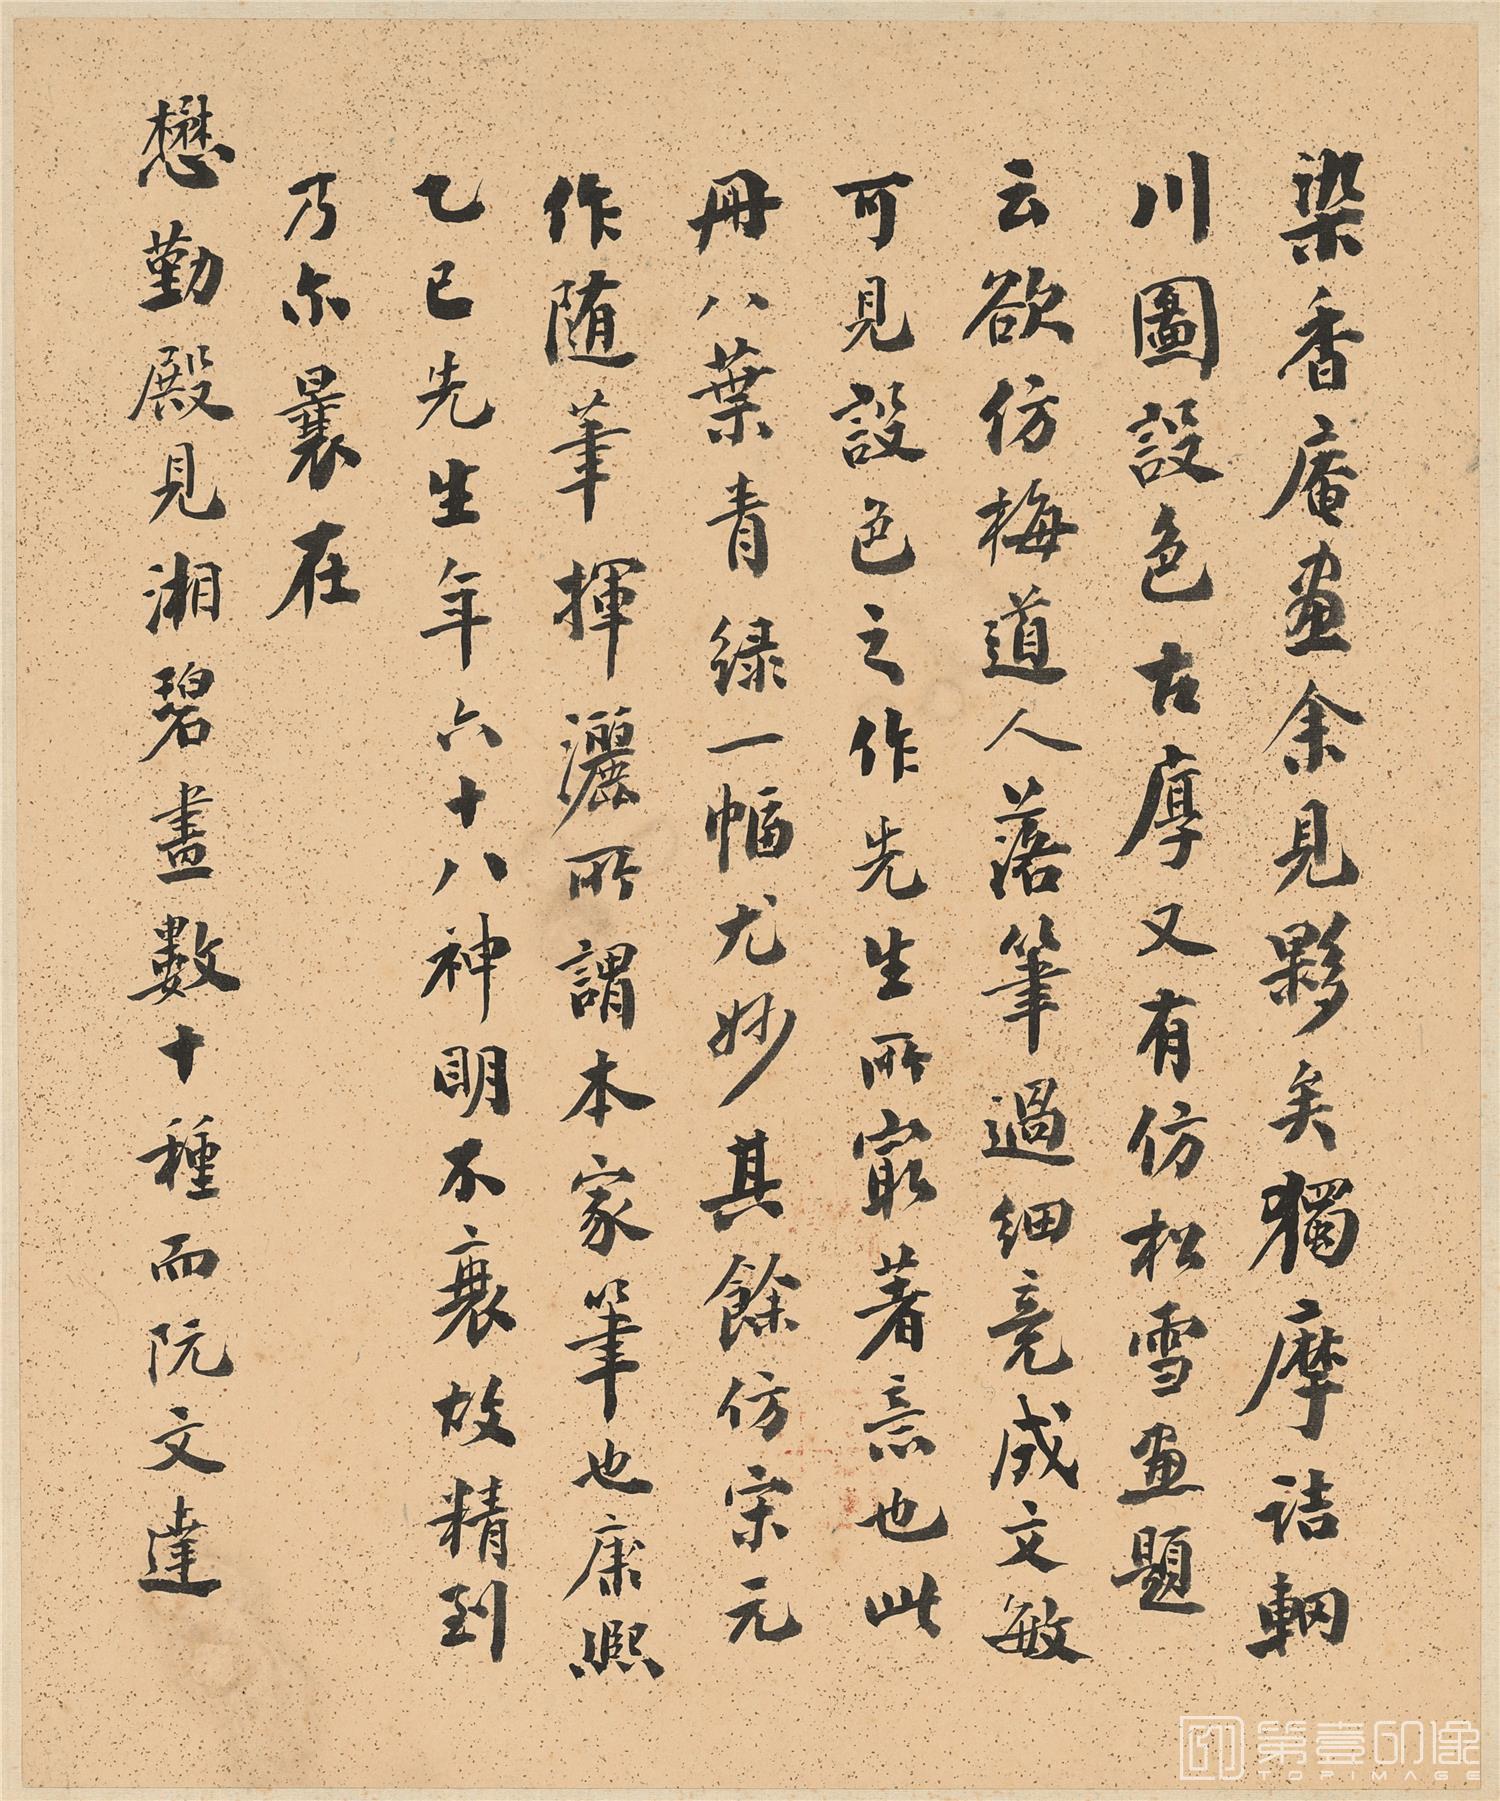 染香庵画余見夥矣獨摩詰輞
川圖設色古厚又有仿松雪画題
云欲仿梅道人落筆過細竟成文敏
可見設色之作先生所寂著意也此
冊八葉青緑一幅尤妙其餘仿宋元
作随筆揮灑所謂本家筆也康熙
乙巳先生年六十八神明不衰故精到
乃尔曩在
懋勤殿見湘碧畫數十種而阮文達
第壹印像
TOPIMAGE